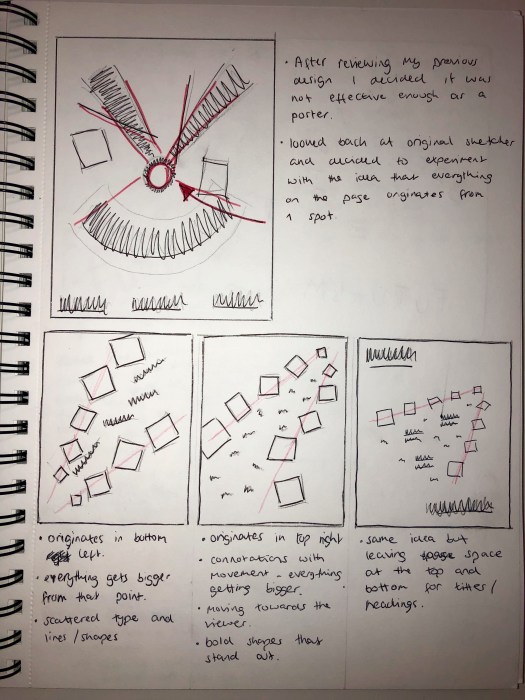 • After reviewing my previous
design I decided it was
not effective enough as a
poster.
• looked back at original sketches
and decided to experiment
with the idea that everything
on the page originates from
1 spot.
• originates in bottom
left.
• everything gets bigger
from that point.
• scattered type and
lines/shapes
• originates in top right
• connotations with
movement - everything
getting bigger.
• moving towards the
viewer.
• bold shapes that
stand out.
• same idea but
leaving space
at the top and
bottom for titles/
headings.